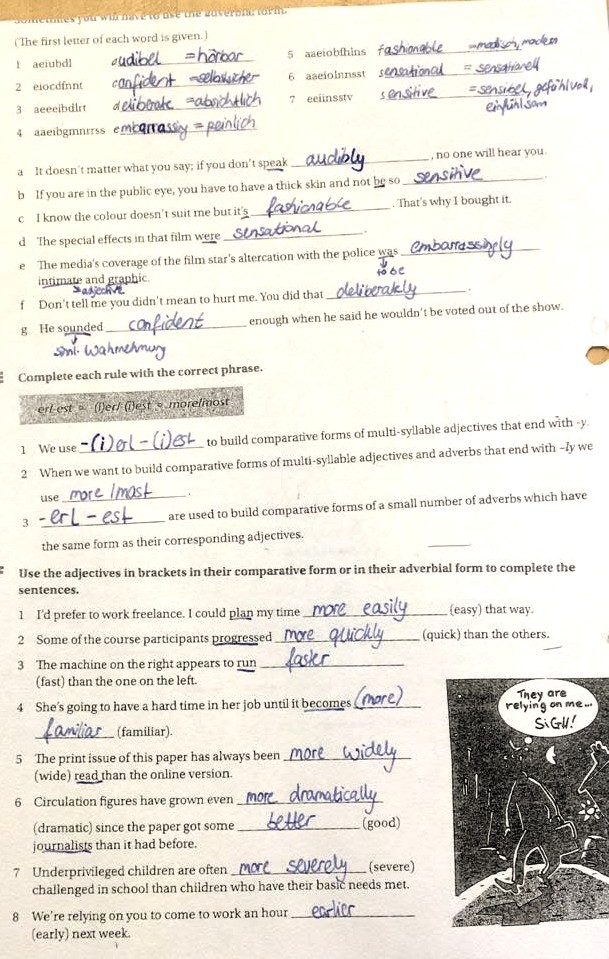 Sometimes you will have to use the adverbial form.
(The first letter of each word is given.)
1 aeiubdl audibel = hörbar
2 eiocdfnnt confident = selbssicher
3 aeeeibdlrt deliberate = absichtlich
4 aaeibgmnrrss embarrassing = peinlich
5 aaeiobfhlns fashionable = modisch, modern
6 aaeiolnnsst sensational = sensationell
7 eeiinsstv sensitive = sensibel, gefühlvoll,
einfühlsam
a It doesn't matter what you say; if you don't speak audibly , no one will hear you.
b If you are in the public eye, you have to have a thick skin and not be so sensitive .
c I know the colour doesn't suit me but it's fashionable . That's why I bought it.
d The special effects in that film were sensational .
e The media's coverage of the film star's altercation with the police was embarrassingly
to be
intimate and graphic.
adjective
f Don't tell me you didn't mean to hurt me. You did that deliberately .
g He sounded confident enough when he said he wouldn't be voted out of the show.
sinl. Wahrnehmung
Complete each rule with the correct phrase.
er/-est • (i)er/ (i)est • more/most
1 We use -(i)er/ -(i)est to build comparative forms of multi-syllable adjectives that end with -y.
2 When we want to build comparative forms of multi-syllable adjectives and adverbs that end with -ly we
use more / most .
3 -er/ -est are used to build comparative forms of a small number of adverbs which have
the same form as their corresponding adjectives.
Use the adjectives in brackets in their comparative form or in their adverbial form to complete the
sentences.
1 I'd prefer to work freelance. I could plan my time more easily (easy) that way.
2 Some of the course participants progressed more quickly (quick) than the others.
3 The machine on the right appears to run faster
(fast) than the one on the left.
4 She's going to have a hard time in her job until it becomes (more)
familiar (familiar).
5 The print issue of this paper has always been more widely
(wide) read than the online version.
6 Circulation figures have grown even more dramatically
(dramatic) since the paper got some better (good)
journalists than it had before.
7 Underprivileged children are often more severely (severe)
challenged in school than children who have their basic needs met.
8 We're relying on you to come to work an hour earlier
(early) next week.
They are
relying on me...
SIGH!